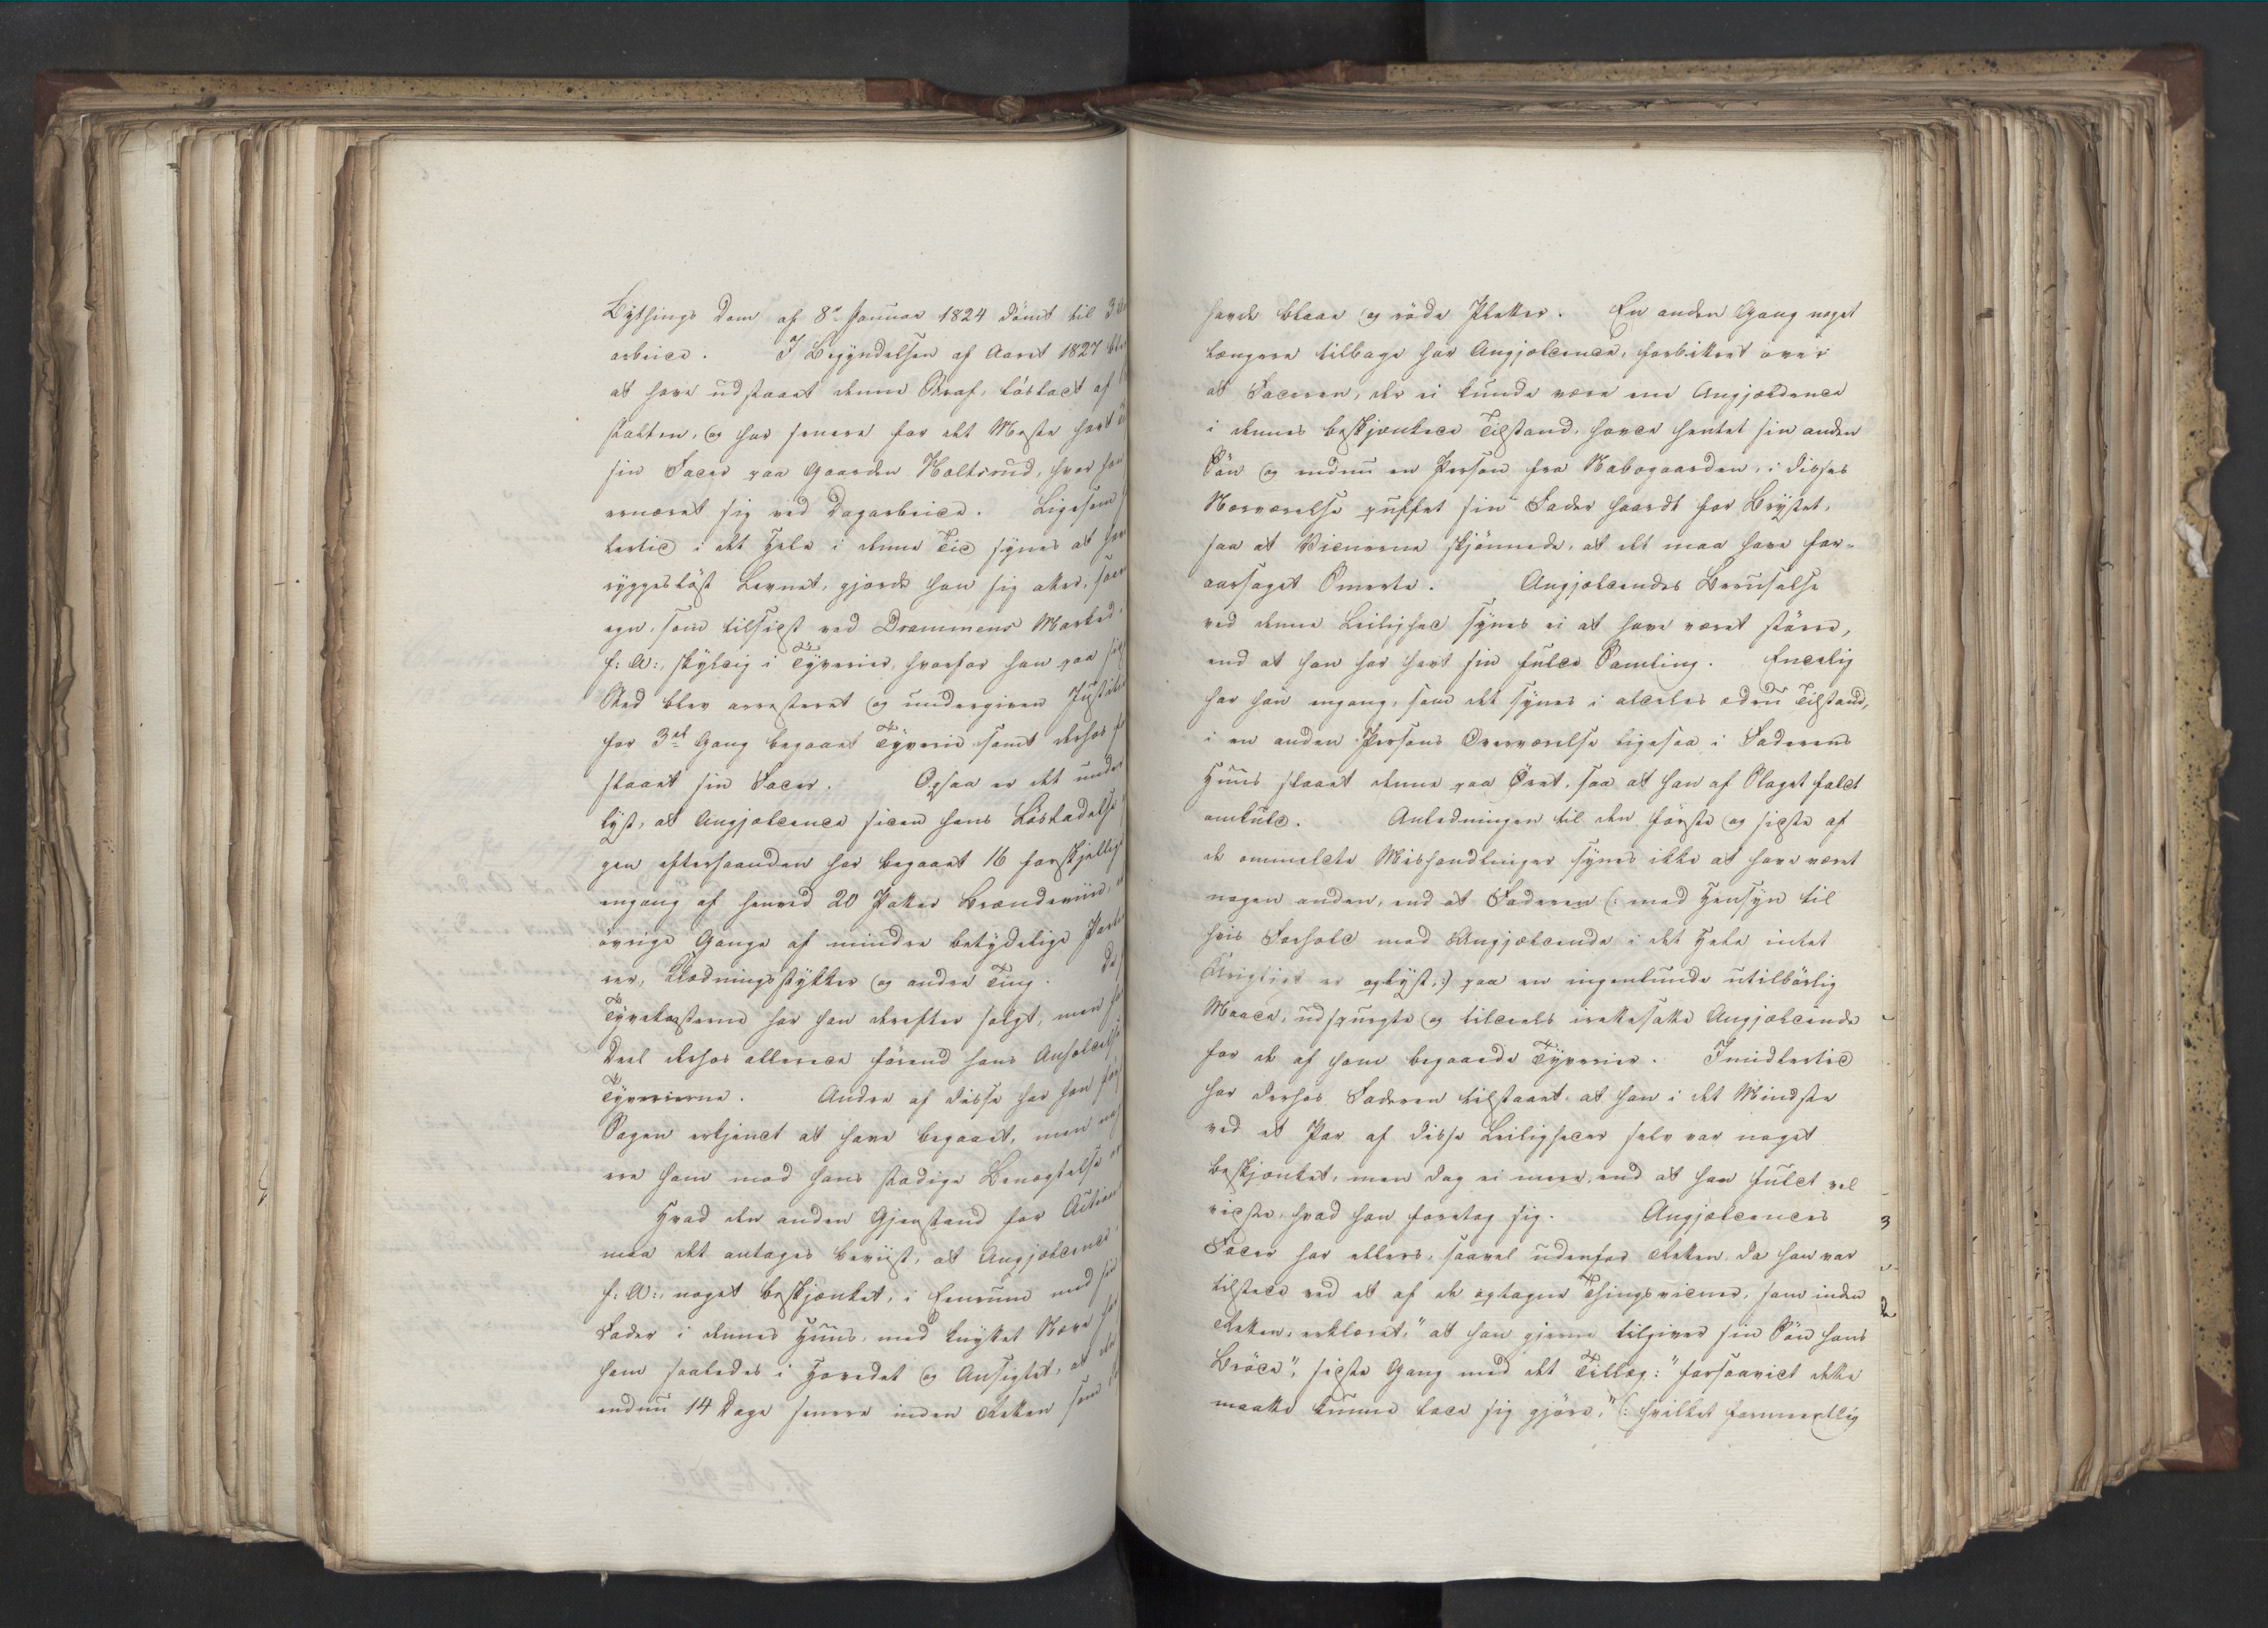 Bythings Dom af 8de Januar 1824 dömt til
arbeide. I Begyndelsen af Aaret 1827 ble
at have udstaaet denne Straf, lösladt af
stalten, og har senere for det Meste havt
sin Fader paa Gaarden Holtsrud, hvor han
ernæret sig ved Dagarbeide. Ligesom
lertid i det Hele i denne Tid synes at
ryggeslöst Levnet, gjorde han sig atter,
egn, som tilsidst ved Drammens Marked
f: A:, skyldig i Tyverier, hvorfor han paa
Sted blev arresteret og undergiven Justitie
for 3die Gang begaaet Tyverie samt derhos
slaaet sin Fader. Ogsaa er det under
lyst, at Angjældende siden hans Lösladelse
gen efterhaanden har begaaet 16 forskjellig
engang af henved 20 Potter Brændeviin,
övrige Gange af mindre betydelige
rer, Klædningsstykker og andre Ting. De
Tyvekosterne har han derefter solgt, men
Deel derhos allerede förend hans Anholdelse
Tyverierne. Andre af disse har han
Sagen erkjendt at have begaaet, men
ere ham mod hans stadige Benægtelse
Hvad den anden Gjenstand for Action
maa det antages beviist, at Angjældende
f: A:, noget beskjænket, i Eenrum med sin
Fader i dennes Huus, med knyttet Næve
ham saaledes i Hovedet og Ansigtet, at
endnu 14 Dage senere inden Retten som
havde blaae og röde Pletter. En anden Gang noget
længere tilbage har Angjældende, forbittret over
at Faderen, der ei kunde være ene Angjældende
i dennes beskjænkede Tilstand, havde hentet sin anden
Sön og endnu en Person fra Nabogaarden, i disses
Nærværelse puffet sin Fader haardt for Brystet,
saa at Vidnerne skjönnede, at det maa have for-
aarsaget Smerte. Angjældendes Beruselse
ved denne Leilighed synes ei at have været större,
end at han har havt sin fulde Samling. Endelig
har han engang, som det synes i aldeles ædru Tilstand,
i en anden Persons Overværelse ligesaa i Faderens
Huus slaaet denne paa Öret, saa at han af Slaget faldt
omkuld. Anledningen til den förste og sidste af
de ommeldte Mishandlinger synes ikke at have været
nogen anden, end at Faderen (: med Hensyn til
hvis Forhold mod Angjældende i det Hele intet
Urigtigt er oplyst,:) paa en ingenlunde utilbörlig
Maade, udspurgte og tildeels irettesatte Angjældende
for de af ham begaaede Tyverier. Imidlertid
har derhos Faderen tilstaaet, at han i det Mindste
ved et Par af disse Leiligheder selv var noget
beskjænket, men dog ei mere, end at han fuldt vel
vidste, hvad han foretog sig. Angjældendes
3
Fader har ellers, saavel udenfor Retten, da han var
tilstede ved et af de optagne Thingsvidner, som inden
2
Retten, erklæret, "at han gjerne tilgiver sin Sön hans
Bröde", sidste Gang med det Tillæg: "forsaavidt dette
maatte kunne lade sig gjöre," (: hvilket formeentlig